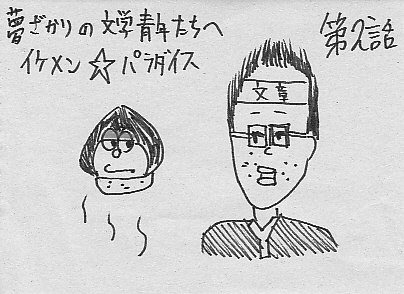 夢ざかりの文学青年たちへ
イケメン☆パラダイス
第2話
文章